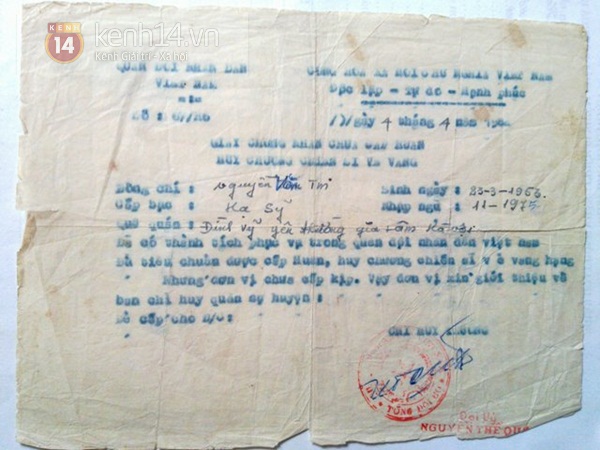 KENH 14
kenh14.vn
Kênh Giải trí - Xã hội
QUÂN ĐỘI NHÂN DÂN
VIỆT NAM
CỘNG HÒA XÃ HỘI CHỦ NGHĨA VIỆT NAM
Độc lập - Tự do - Hạnh phúc
Số :
Ngày 4 tháng 4 năm
GIẤY CHỨNG NHẬN CHƯA CẤP HUÂN
HUY CHƯƠNG CHIẾN SĨ VẺ VANG
Đồng chí : Nguyễn Văn
Sinh ngày :
Cấp bậc : Hạ Sỹ
Nhập ngũ : 11-1975
Quê quán : Đình Vỹ yên thường gia Lâm Hà nội
Đã có thành tích phục vụ trong quân đội nhân dân việt nam
Đủ tiêu chuẩn được cấp Huân, huy chương chiến sĩ vẻ vang hạng
Nhưng đơn vị chưa cấp kịp. Vậy đơn vị xin giới thiệu về
ban chỉ huy quân sự huyện :
Để cấp cho Đ/C:
CHỈ HUY TRƯỞNG
Đại úy
NGUYỄN THẾ